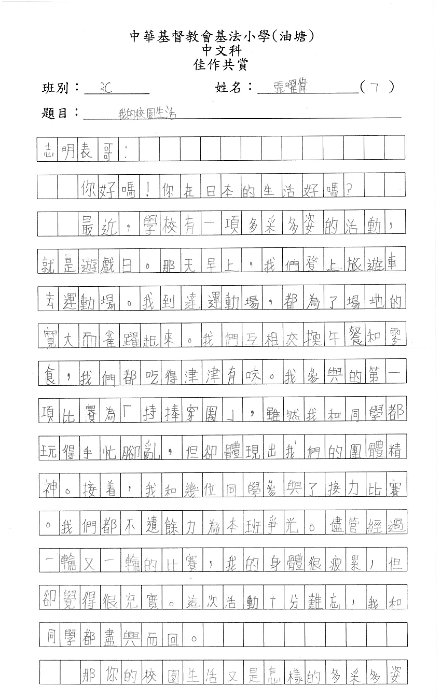 中華基督教會基法小學(油塘)
中文科
佳作共賞
班別： 2C 姓名： 張曜偉 (7)
題目： 我的校園生活
志明表哥：
你好嗎！你在日本的生活好嗎？
最近，學校有一項多采多姿的活動，
就是遊戲日。那天早上，我們登上旅遊車
去運動場。我到達運動場，都為了場地的
寬大而雀躍起來。我們互相交換午餐和零
食，我們都吃得津津有味。我參與的第一
項比賽為「持捧穿圈」，雖然我和同學都
玩得手忙腳亂，但卻體現出我們的團體精
神。接着，我和幾位同學參與了接力比賽
。我們都不遺餘力為本班爭光。儘管經過
一輪又一輪的比賽，我的身體很疲累，但
卻覺得很充實。這次活動十分難忘，我和
同學都盡興而回。
那你的校園生活又是怎樣的多采多姿